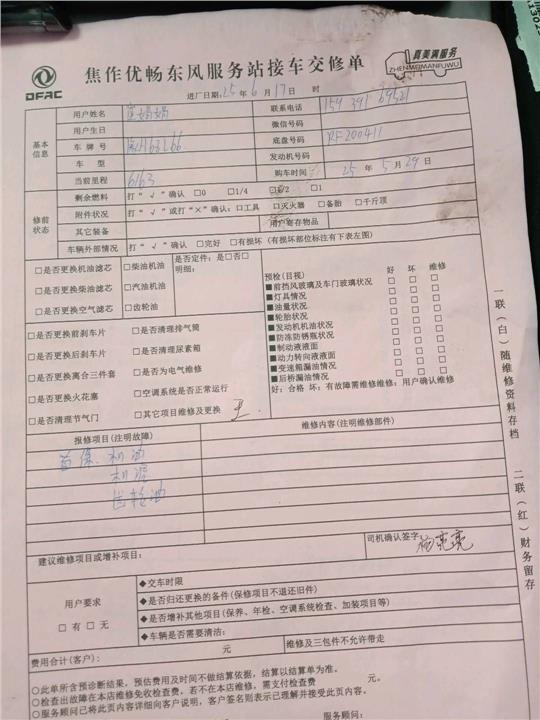 DFAC
焦作优畅东风服务站接车交修单
真美满服务
ZHENMEIMANFUWU
进厂日期:25年6月17日 时
基本信息
用户姓名
联系电话
用户生日
微信号码
车牌号
底盘号码 RF200411
车型
发动机号码
当前里程 6163
购车时间 25年5月29日
修前状态
剩余燃料 打“√”确认 □0 □1/4 □1/2 □1
附件状况 打“√”或打“×”确认:□工具 □灭火器 □备胎 □千斤顶
其它装备
用户寄存物品
车辆外部情况 打“√”确认 □完好 □有损坏(有损坏部位标注有下表左图)
□是否更换机油滤芯 □柴油机油 是否定件:是□否□
明细:
□是否更换柴油滤芯 □汽油机油
□是否更换空气滤芯 □齿轮油
□是否更换前刹车片 □是否清理排气筒
□是否更换后刹车片 □是否清理尿素箱
□是否更换离合三件套 □是否为电气维修
□是否更换火花塞 □空调系统是否正常运行
□是否清理节气门 □其它项目维修及更换
预检(目视) 好 坏 维修
■前挡风玻璃及车门玻璃状况 □ □ □
■灯具情况 □ □ □
■油量状况 □ □ □
■轮胎状况 □ □ □
■发动机机油状况 □ □ □
■防冻防锈瓶状况 □ □ □
■制动液液面 □ □ □
■动力转向液液面 □ □ □
■变速箱漏油情况 □ □ □
■后桥漏油情况 □ □ □
好:合格 坏:有故障需维修维修:用户确认维修
报修项目(注明故障)
维修内容(注明维修部件)
首保.机油
机滤
齿轮油
建议维修项目或增补项目:
司机确认签字:
用户要求
□有□无
◆交车时限
◆是否归还更换的备件(保修项目不退还旧件)
◆是否增补其他项目(保养、年检、空调系统检查、加装项目等)
◆车辆是否需要清洁:
费用合计(客户): 元
维修及三包件不允许带走
○此单所含预诊断结果，预估费用及时间不做结算依据，结算以结算单为准。
○检查出故障在本店维修免收检查费，若不在本店维修，需支付检查费 元。
○服务顾问已将此页内容详细向客户说明，客户签名则表示已理解并接受此页内容。
服务顾问:
一联(白)随维修资料存档
二联(红)财务留存